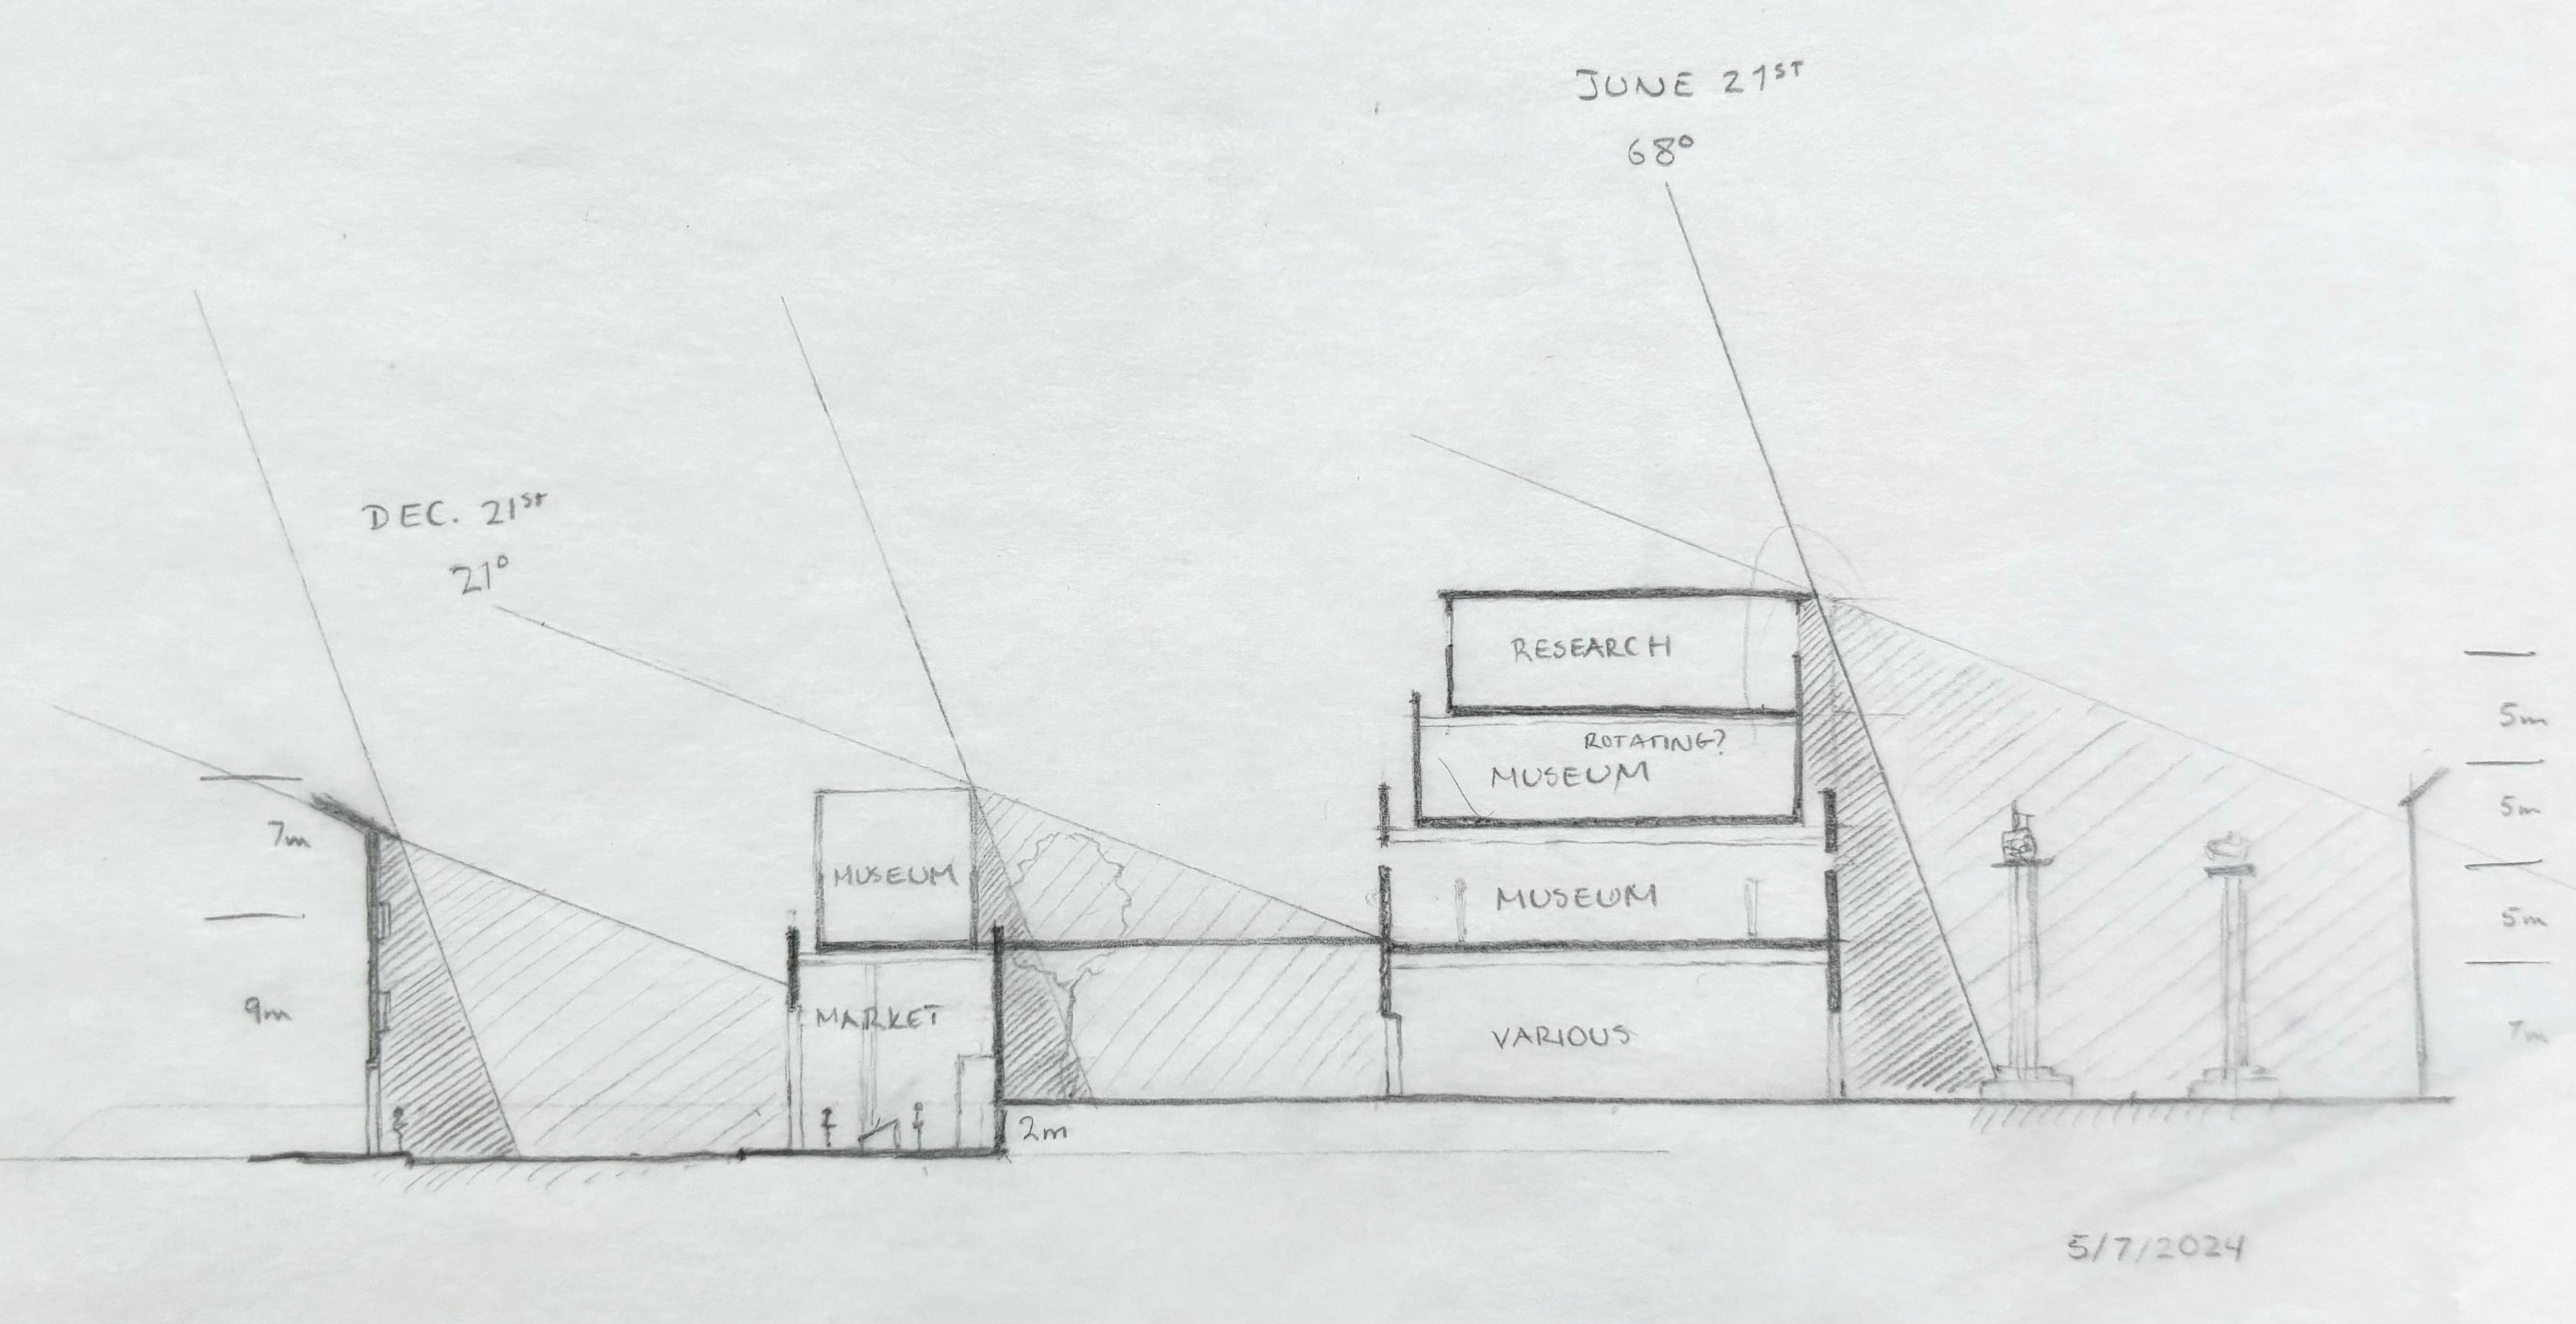 JUNE 21ST
68°
DEC. 21st
21°
RESEARCH
5m
ROTATING?
MUSEUM
5m
7m
MUSEUM
MUSEUM
5m
9m
MARKET
VARIOUS
7m
2m
5/7/2024